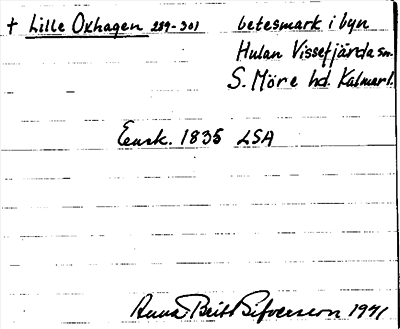 + Lille Oxhagen 289-301 betesmark i byn
Hulan Vissefjärda sn.
S. Möre hd. Kalmar l.
Ensk. 1835 LSA
Anna Britt Sifversson 1941